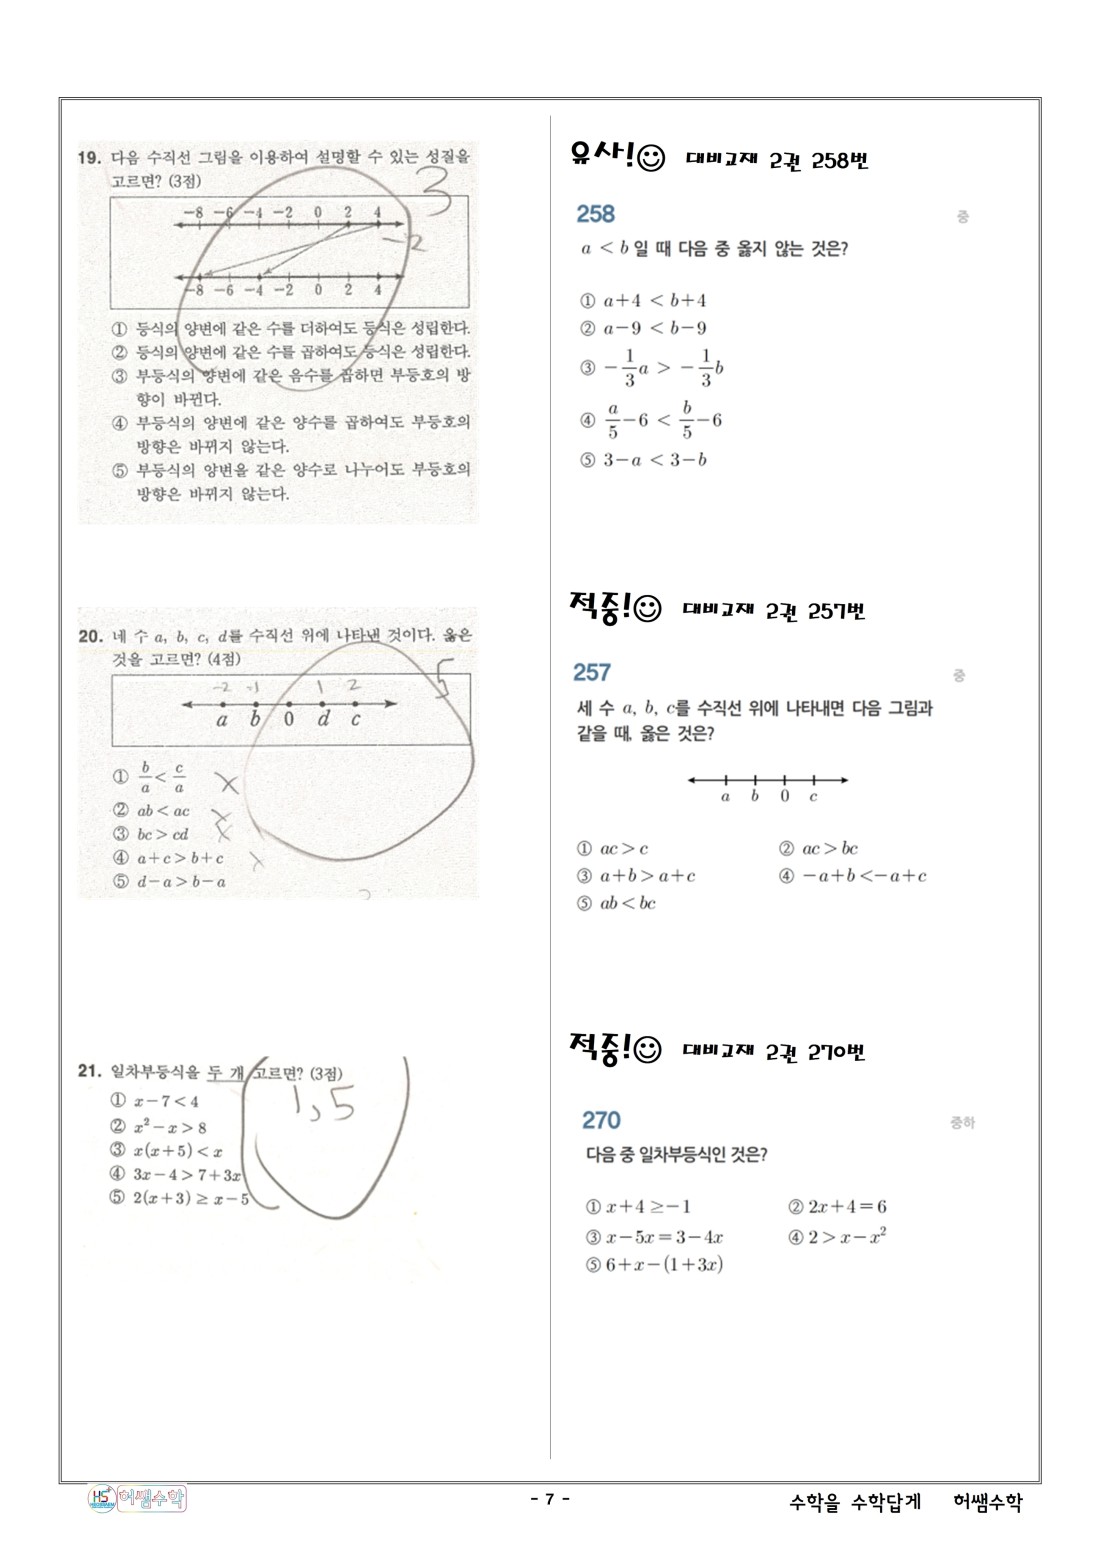 19. 다음 수직선 그림을 이용하여 설명할 수 있는 성질을
고르면? (3점)
3
-8 -6 -4 -2 0 2 4
-2
-8 -6 -4 -2 0 2 4
① 등식의 양변에 같은 수를 더하여도 등식은 성립한다.
② 등식의 양변에 같은 수를 곱하여도 등식은 성립한다.
③ 부등식의 양변에 같은 음수를 곱하면 부등호의 방
향이 바뀐다.
④ 부등식의 양변에 같은 양수를 곱하여도 부등호의
방향은 바뀌지 않는다.
⑤ 부등식의 양변을 같은 양수로 나누어도 부등호의
방향은 바뀌지 않는다.
20. 네 수 a, b, c, d를 수직선 위에 나타낸 것이다. 옳은
것을 고르면? (4점)
5
-2 -1 1 2
a b 0 d c
① b/a < c/a
② ab < ac
③ bc > cd
④ a+c > b+c
⑤ d-a > b-a
21. 일차부등식을 두 개 고르면? (3점)
1, 5
① x-7 < 4
② x²-x > 8
③ x(x+5) < x
④ 3x-4 > 7+3x
⑤ 2(x+3) ≥ x-5
유사! 대비교재 2권 258번
258 중
a < b 일 때 다음 중 옳지 않는 것은?
① a+4 < b+4
② a-9 < b-9
③ -1/3a > -1/3b
④ a/5-6 < b/5-6
⑤ 3-a < 3-b
적중! 대비교재 2권 257번
257 중
세 수 a, b, c를 수직선 위에 나타내면 다음 그림과
같을 때, 옳은 것은?
a b 0 c
① ac > c ② ac > bc
③ a+b > a+c ④ -a+b < -a+c
⑤ ab < bc
적중! 대비교재 2권 270번
270 중하
다음 중 일차부등식인 것은?
① x+4 ≥ -1 ② 2x+4 = 6
③ x-5x = 3-4x ④ 2 > x-x²
⑤ 6+x-(1+3x)
HS 허쌤수학
- 7 -
수학을 수학답게 허쌤수학